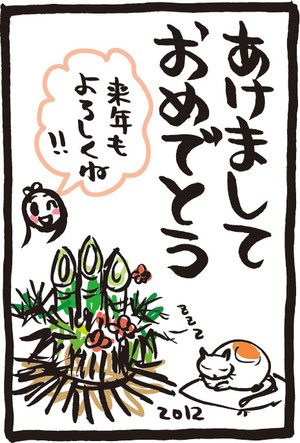 あけまして
おめでとう
来年も
よろしくね
!!
zzz
2012